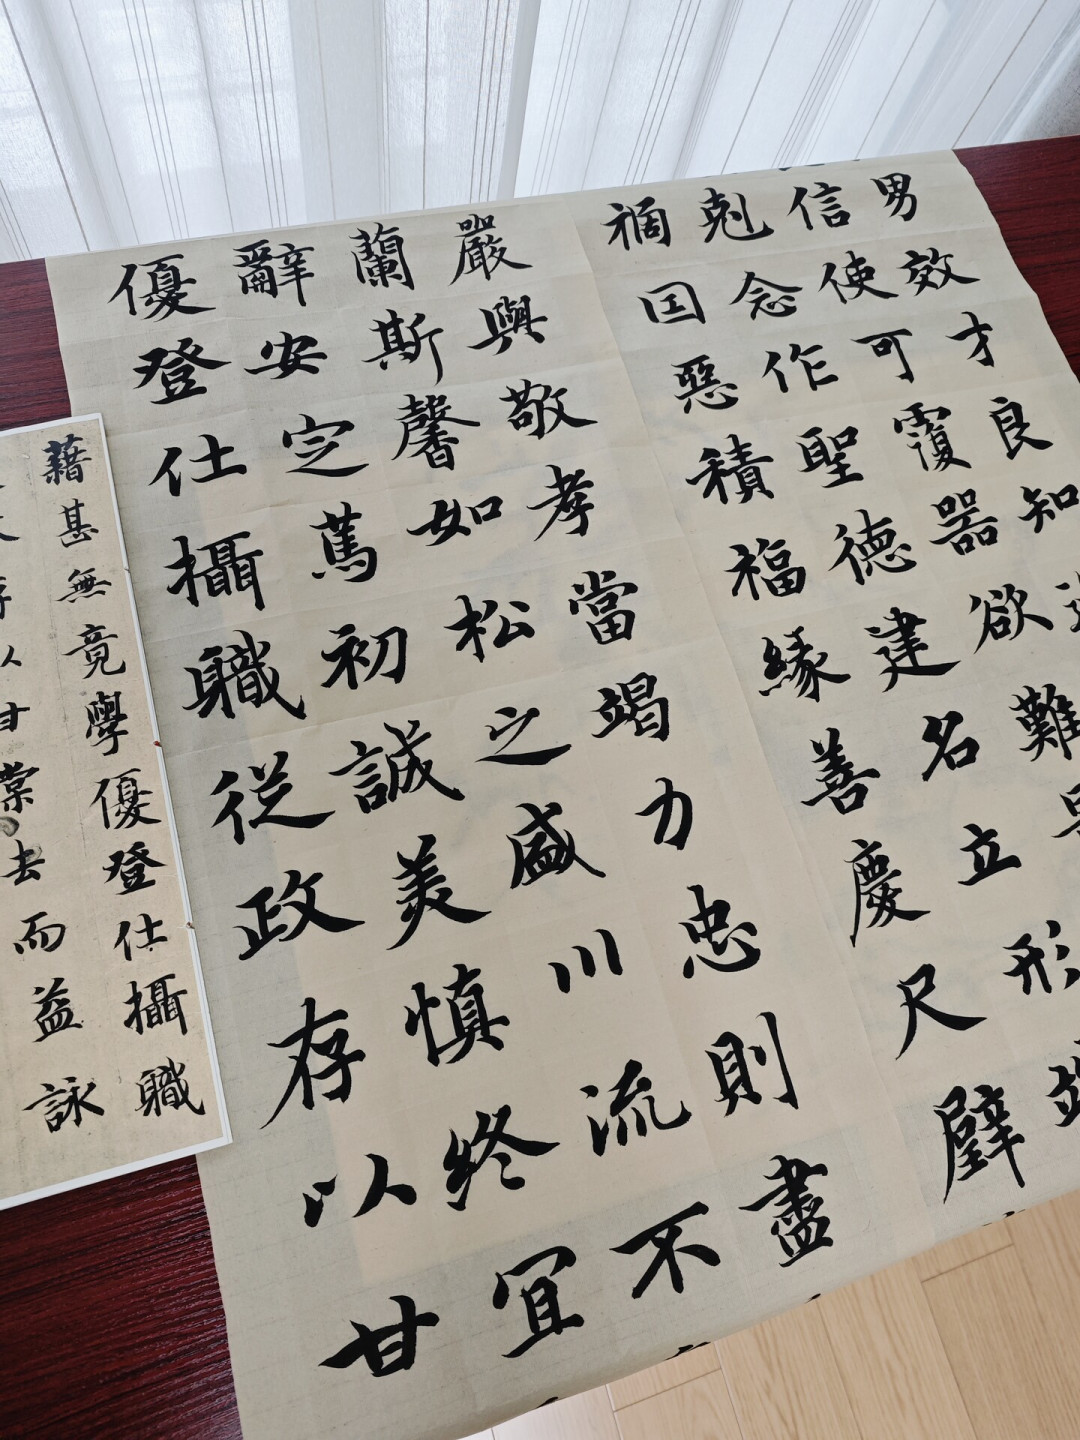 男效才良知
信使可覆器欲難
剋念作聖德建名立形端
禍囙惡積福緣善慶尺璧
嚴與敬孝當竭力忠則盡
蘭斯馨如松之盛川流不
辭安定篤初誠美慎終宜
優登仕攝職從政存以甘
藉甚無竟學優登仕攝職
存以甘棠去而益詠